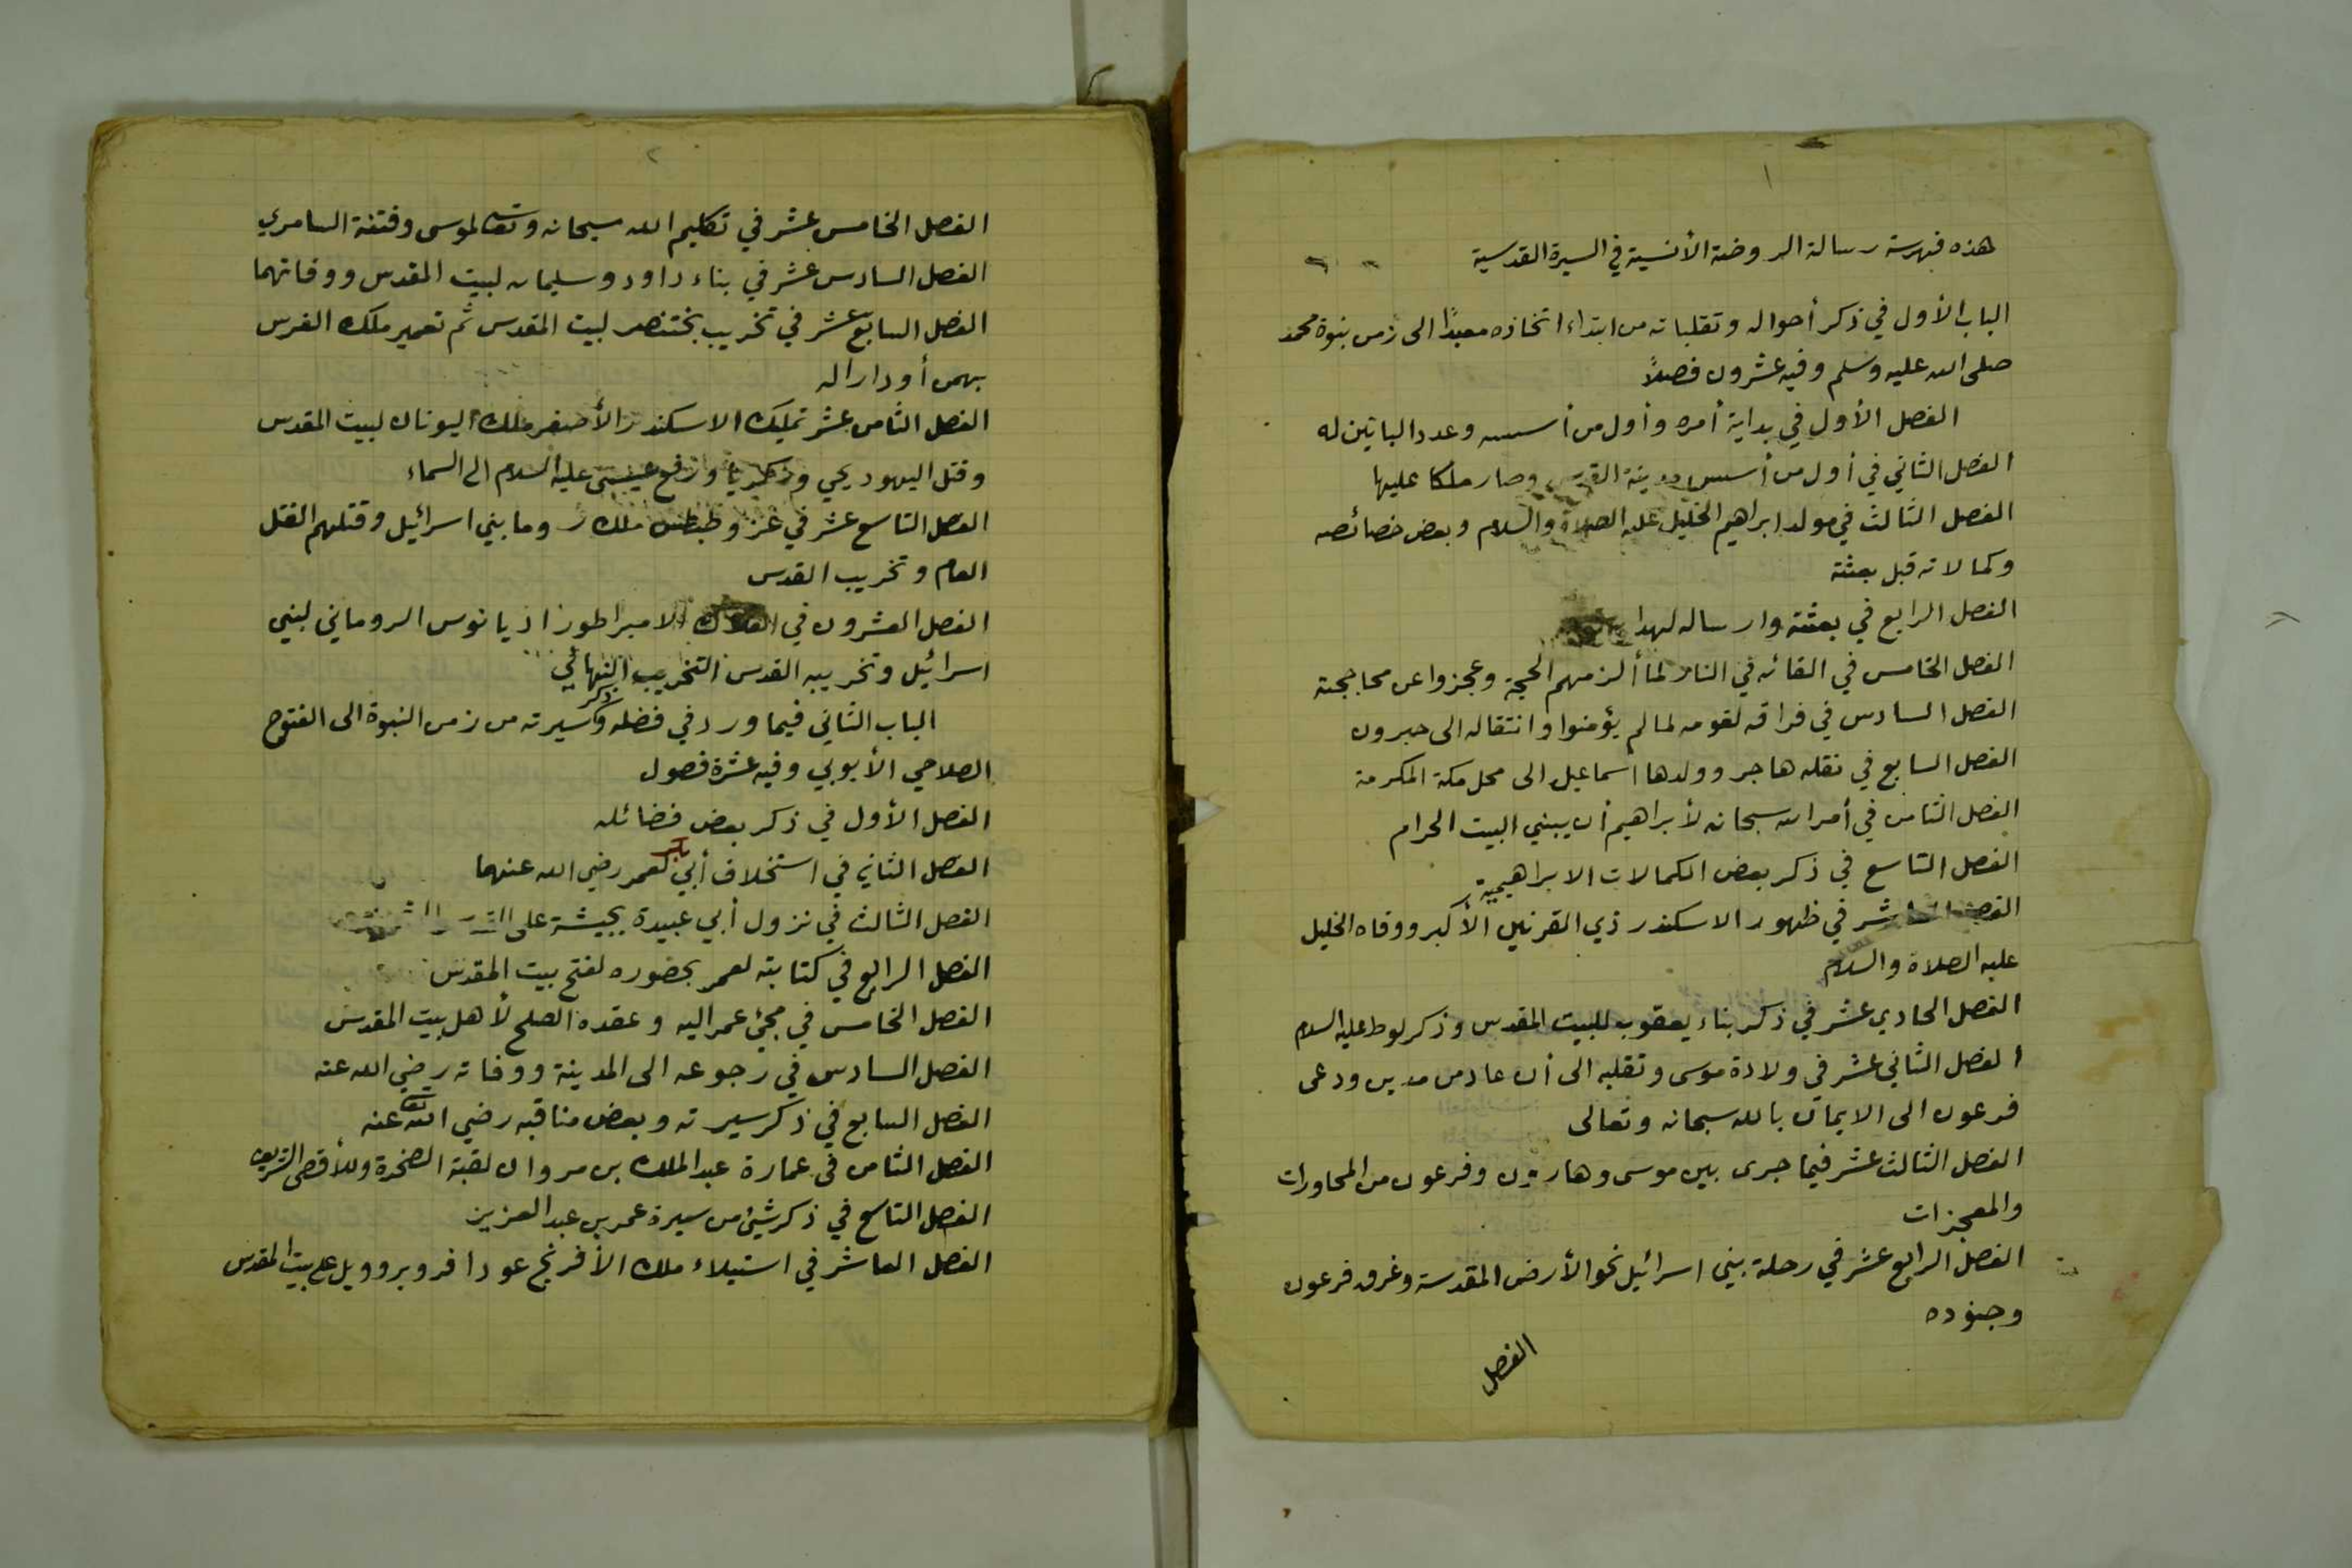 ١
هذه فهرسة رسالة الروضة الأنسية في السيرة القدسية
الباب الأول في ذكر أحواله وتقلباته من ابتداء اتخاذه معبدًا الى زمن بنوة محمد
صلى الله عليه وسلم وفيه عشرون فصلاً
الفصل الأول في بداية أمره وأول من أسسه وعدد البانين له
الفصل الثاني في أول من أسس مدينة القدس وصار ملكا عليها
الفصل الثالث في مولد ابراهيم الخليل عليه الصلاة والسلام وبعض خصائصه
وكمالاته قبل بعثته
الفصل الرابع في بعثته وارساله لهدا
الفصل الخامس في القائه في النار لما ألزمهم الحجة وعجزوا عن محاججته
الفصل السادس في فراقه لقومه لما لم يؤمنوا وانتقاله الى حبرون
الفصل السابع في نقله هاجر وولدها اسماعيل الى محل مكة المكرمة
الفصل الثامن في أمر الله سبحانه لأبراهيم أن يبني البيت الحرام
الفصل التاسع في ذكر بعض الكمالات الابراهيمية
الفصل العاشر في ظهور الاسكندر ذي القرنين الأكبر ووفاه الخليل
عليه الصلاة والسلام
الفصل الحادي عشر في ذكر بناء يعقوب للبيت المقدس وذكر لوط عليه السلام
الفصل الثاني عشر في ولادة موسى وتقلبه الى أن عاد من مدين ودعى
فرعون الى الايمان بالله سبحانه وتعالى
الفصل الثالث عشر فيما جرى بين موسى وهارون وفرعون من المحاورات
والمعجزات
الفصل الرابع عشر في رحلة بني اسرائيل نحو الأرض المقدسة وغرق فرعون
وجنوده
الفصل
٢
الفصل الخامس عشر في تكليم الله سبحانه وتعالى لموسى وفتنة السامري
الفصل السادس عشر في بناء داود وسليمان لبيت المقدس ووفاتهما
الفصل السابع عشر في تخريب بختنصر لبيت المقدس ثم تعمير ملك الفرس
بهمن أو دارا له
الفصل الثامن عشر تمليك الاسكندر الأصغر ملك اليونان لبيت المقدس
وقتل اليهود يحي وزكريا ورفع عيسى عليه السلام الى السماء
الفصل التاسع عشر في غزو طيطس ملك روما بني اسرائيل وقتلهم القتل
العام وتخريب القدس
الفصل العشرون في الامبراطور اذيانوس الروماني لبني
اسرائيل وتخريبه القدس التخريب النهائي
الباب الثاني فيما ورد في فضله وذكر سيرته من زمن النبوة الى الفتوح
الصلاحي الأيوبي وفيه عشرة فصول
الفصل الأول في ذكر بعض فضائله
الفصل الثاني في استخلاف أبي بكر لعمر رضي الله عنهما
الفصل الثالث في نزول أبي عبيدة بجيشه على القدس
الفصل الرابع في كتابته لعمر بحضوره لفتح بيت المقدس
الفصل الخامس في مجئ عمر اليه وعقده الصلح لأهل بيت المقدس
الفصل السادس في رجوعه الى المدينة ووفاته رضي الله عنه
الفصل السابع في ذكر سيرته وبعض مناقبه رضي الله عنه
الفصل الثامن في عمارة عبد الملك بن مروان لقبة الصخرة وللأقصى الشريف
الفصل التاسع في ذكر شئ من سيرة عمر بن عبد العزيز
الفصل العاشر في استيلاء ملك الأفرنج عودافرو بروويل على بيت المقدس